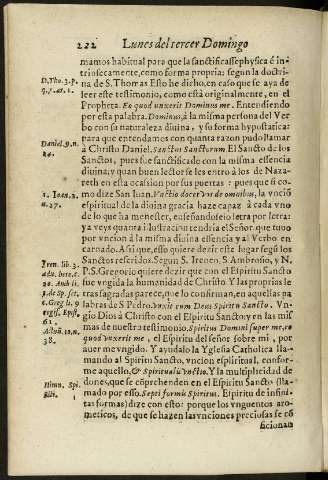 222 Lunes del tercer Domingo
mamos habitual para que la sanctificasse physica è in-
triosecamente, como forma propria: segun la doctri-
D. Tho. 3. p.
na de S. Thomas Esto he dicho, en caso que se aya de
leer este testimonio, como està originalmente, en el
Propheta. Eo quod unxerit Dominus me. Entendiendo
por esta palabra. Dominus, à la misma persona del Ver
bo con su naturaleza divina, y su forma hypostatica:
para que entendamos con quanta razon pudo llamar
Daniel. 9. n.
24.
à Christo Daniel. Sanctus Sanctorum El Sancto de los
Sanctos, pues fue sanctificado con la misma essencia
divina; y quan buen lector se les entro à los de Naza-
reth en esta ocassion por sus puertas: pues que si co-
1. Ioan. 2.
n. 27.
mo dize San Iuan. Vnctio docet vos de omnibus, la vnciõ
espiritual de la divina gracia haze capaz à cada vno
de lo que ha menester, enseñandoselo letra por letra:
ya veys quanta ilustracion tendria el Señor, que tuuo
por vncion à la misma divina essencia y al Verbo en
carnado. Assi que, esto quiere dezir este lugar segũ los
Sanctos referidos. Segun S. Ireneo, S. Ambrosio, y N.
Iren. lib. 3.
P. S. Gregorio quiere dezir que con el Espiritu Sancto
fue vngida la humanidad de Christo. Y las propias le
tras sagradas parece, que lo confirman, en aquellas pa
labras de S. Pedro. Vnxit eum Deus Spiritu Sancto. Vn-
gio Dios à Christo con el Espiritu Sancto y en las mis
mas de nuestro testimonio. Spiritus Domini super me, eo
Actuũ. 10. n.
38.
quod vnxerit me, el Espiritu del señor sobre mi, por
auer me vngido. Y ayudalo la Yglesia Catholica lla-
mando al Spiritu Sancto, vncion espiritual, conforme
aquello, & Spiritualis vnctio. Y la multiplicidad de
Himn. Spi
dones, que se cõprehenden en el Espiritu Sancto (lla-
mado por esso. Septi formis Spiritus. Espiritu de infini
tas formas) dize con esto: porque los vnguentos aro-
meticos, de que se hazen las vnciones preciosas se cõ
ficionan